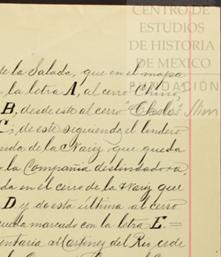 CENTRO DE
ESTUDIOS
DE HISTORIA
DE MEXICO
FUNDACIÓN
de la Salada, que en el mapa
la letra A, al cerro Chino,
B, desde esto al cerro
C, de este siguiendo el lindero
de la Nariz que queda
la Compañia deslindadora,
da en el cerro de la Nariz que
D y de esta última al cerro
queda marcado con la letra E.=
entaria Martinez del Rio, cede